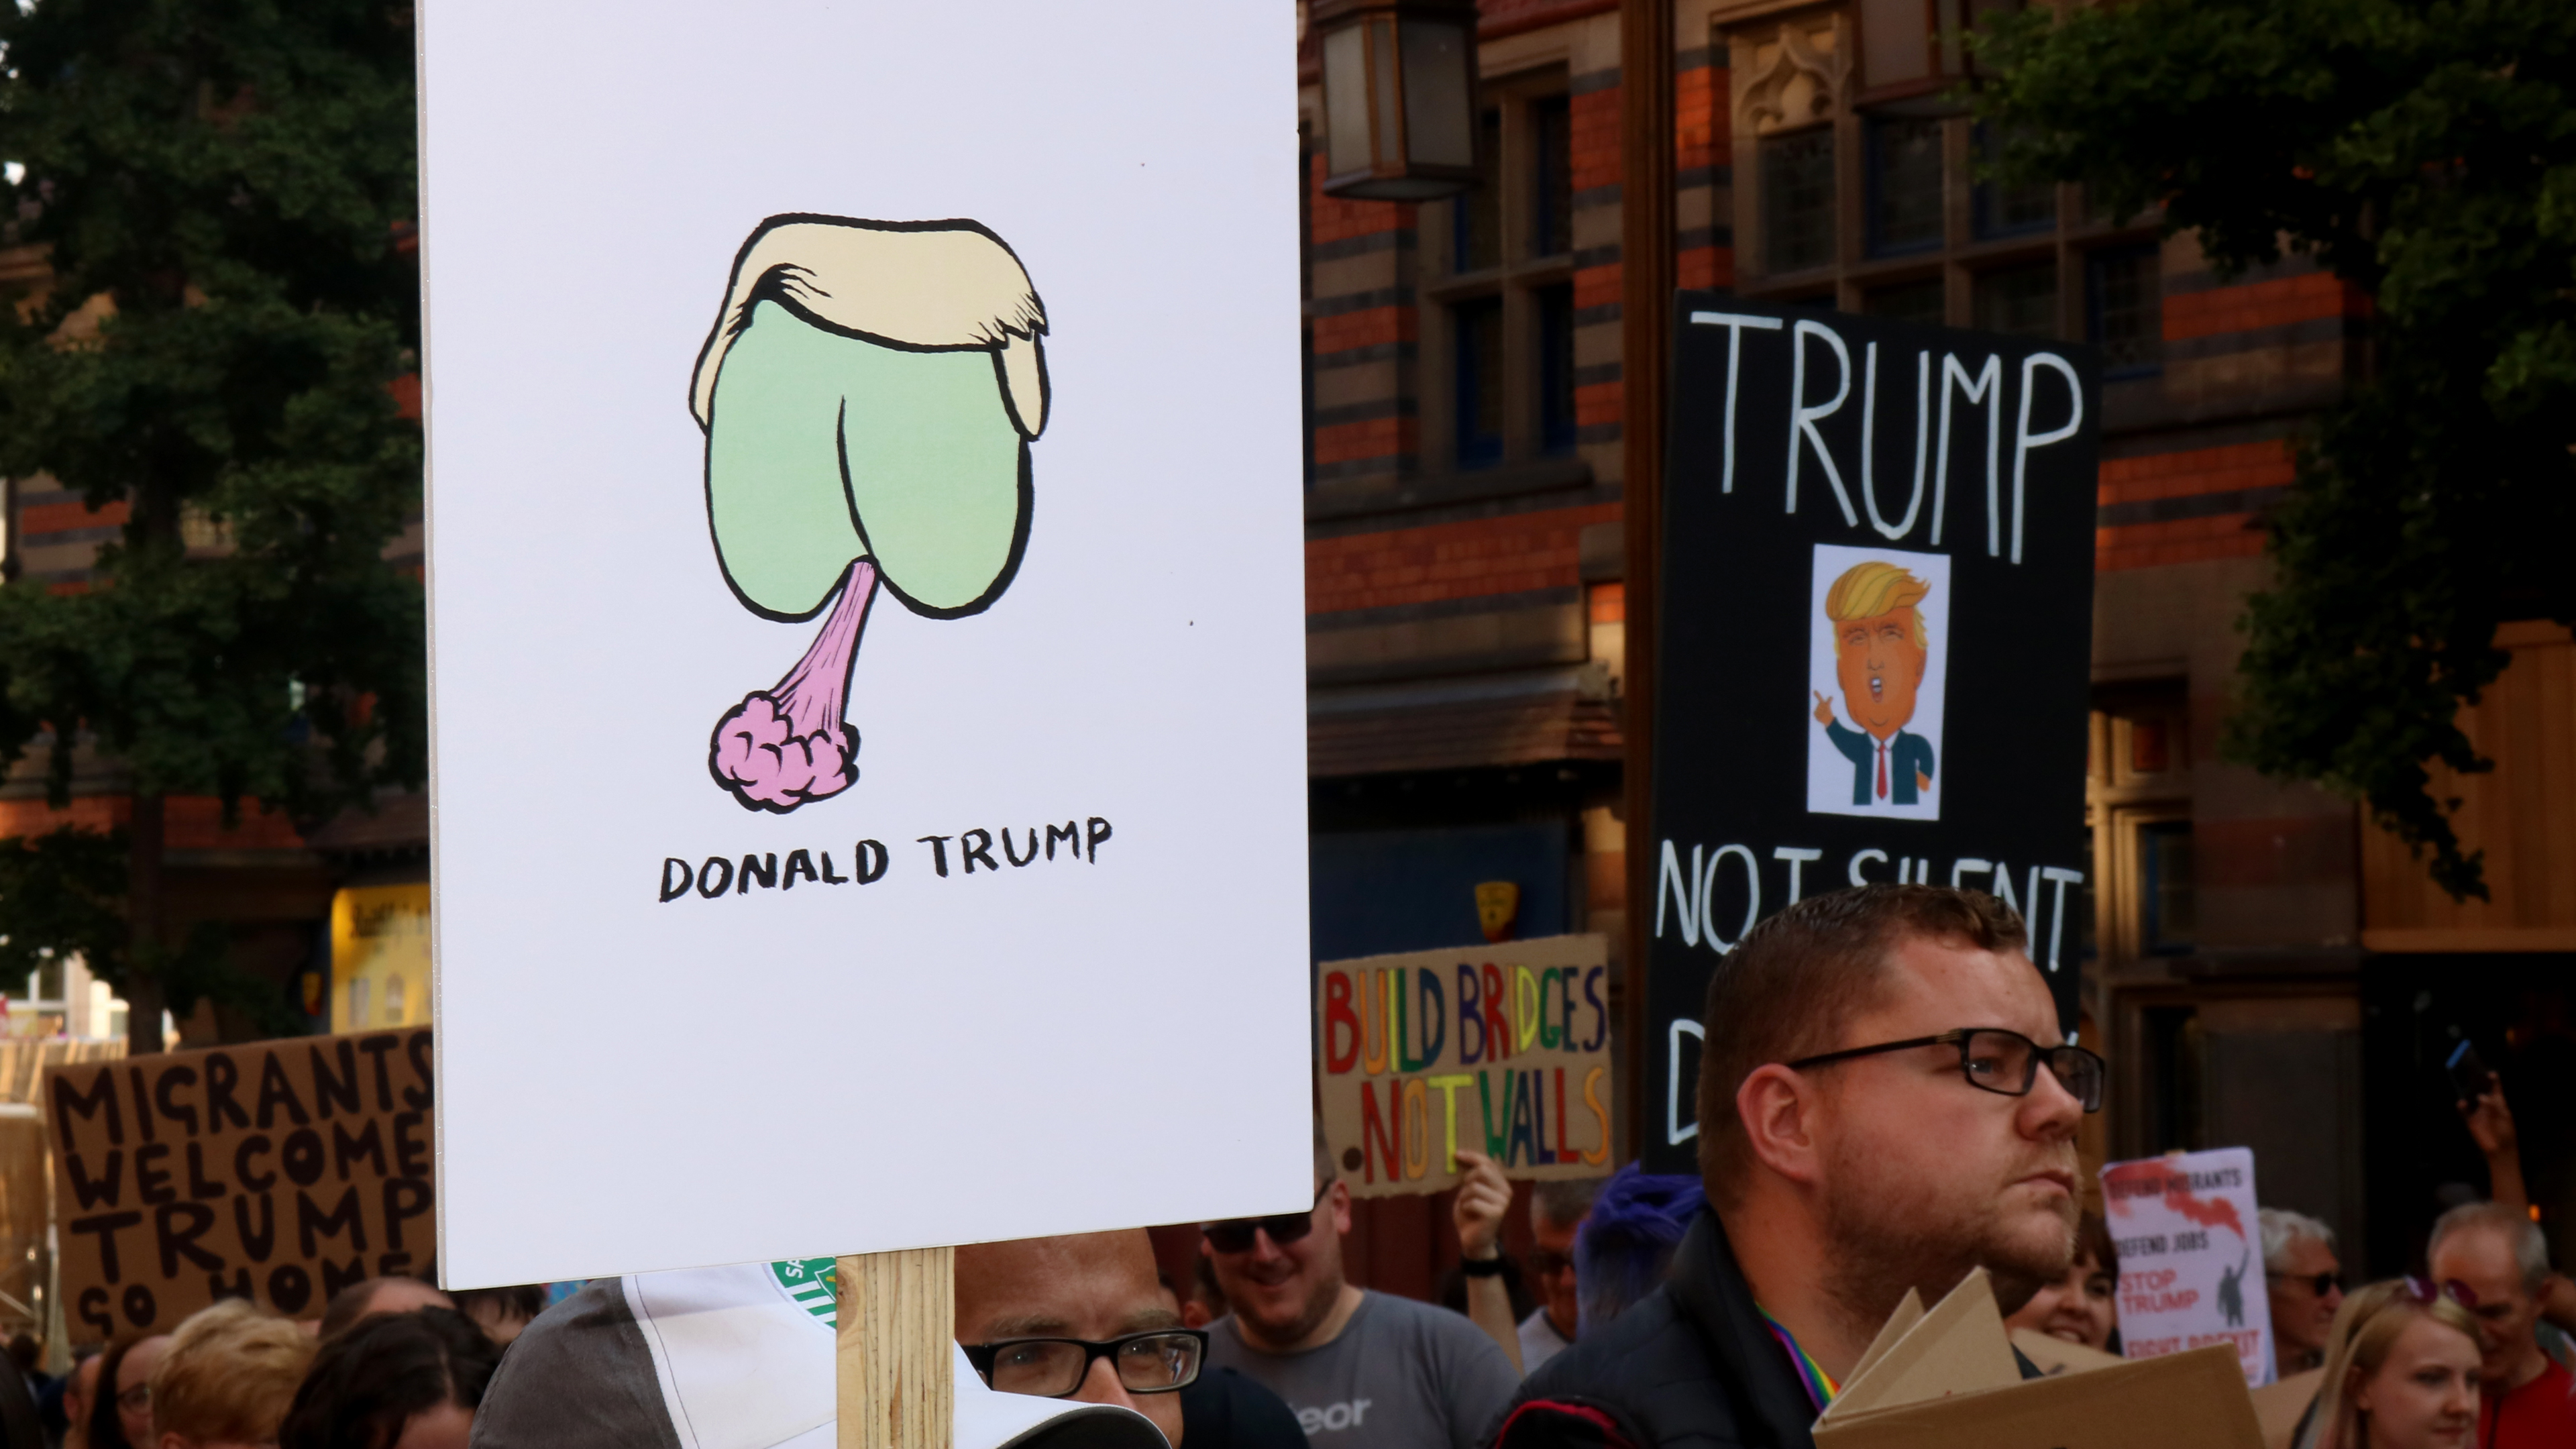 DONALD TRUMP
TRUMP
NOT SILENT
D
BUILD BRIDGES
NOT WALLS
MIGRANTS
WELCOME
TRUMP
GO HOME
DEFEND MIGRANTS
DEFEND JOBS
STOP
TRUMP
FIGHT BREXIT
eor